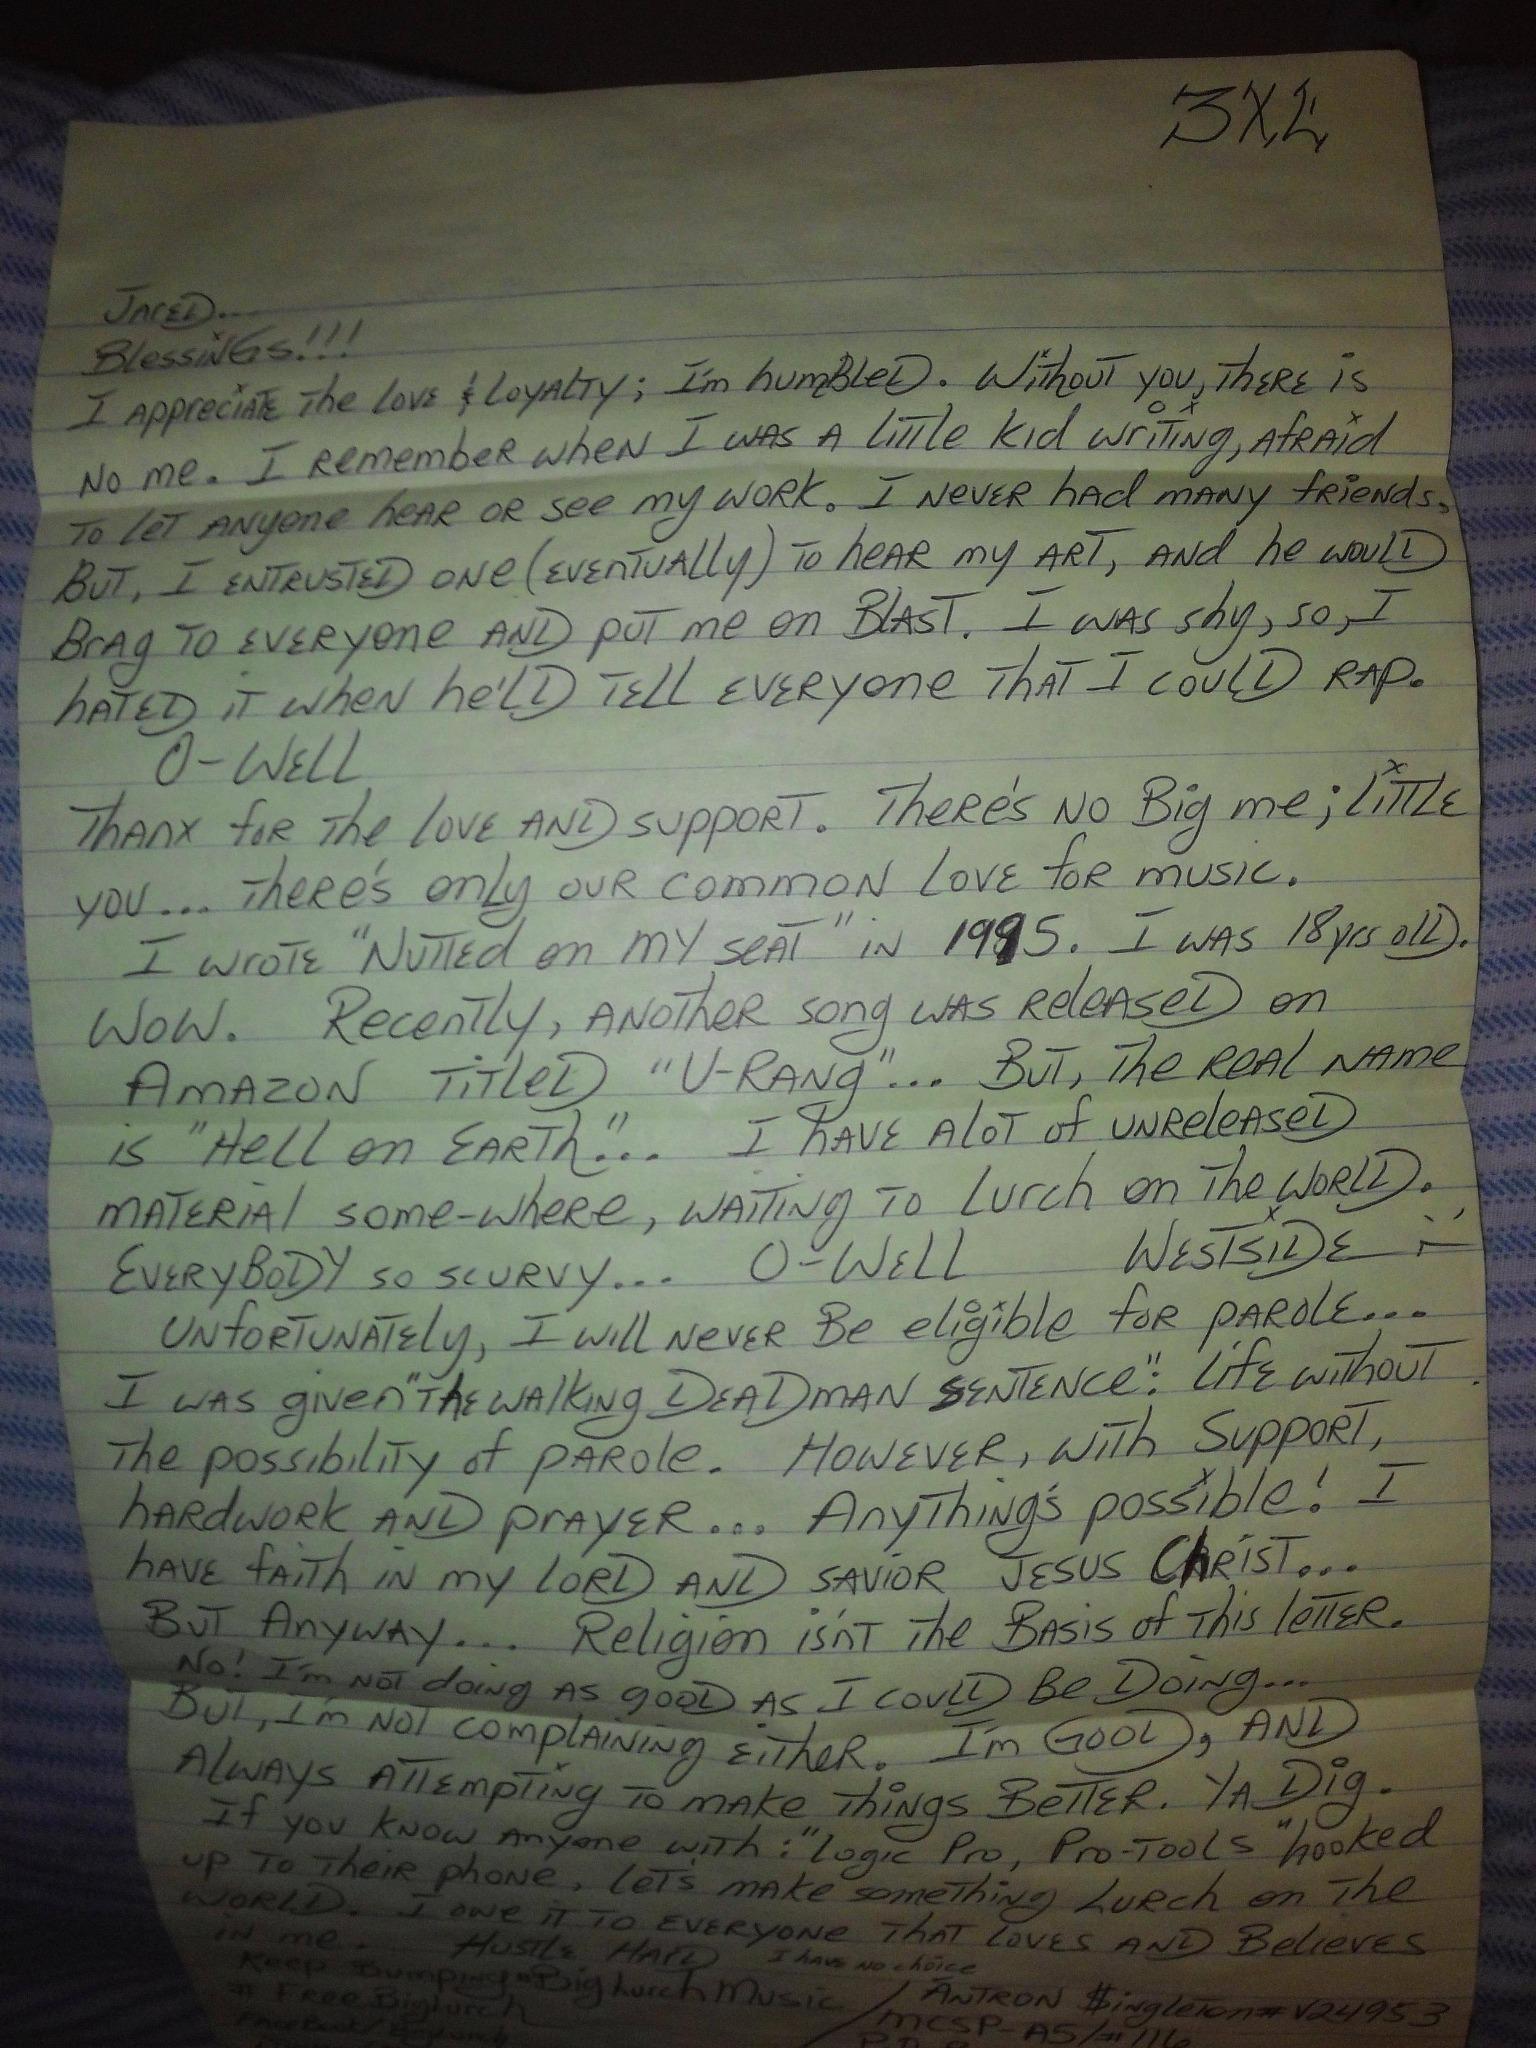 3X,L
Jared...
Blessings!!!
I appreciate the love & loyalty; I'm humbled. Without you, there is
no me. I remember when I was a little kid writing, afraid
to let anyone hear or see my work. I never had many friends.
But, I entrusted one (eventually) to hear my art, and he would
brag to everyone and put me on blast. I was shy, so, I
hated it when he'ld tell everyone that I could rap.
O-Well
Thanx for the love and support. There's no Big me; little
you... there's only our common love for music.
I wrote "Nutted on my seat" in 1995. I was 18 yrs old.
Wow. Recently, another song was released on
Amazon titled "U-Rang"... But, the real name
is "Hell on Earth"... I have alot of unreleased
material some-where, waiting to Lurch on the world.
Everybody so scurvy... O-Well Westside
Unfortunately, I will never be eligible for parole...
I was given "the walking dead man sentence": life without
the possibility of parole. However, with support,
hardwork and prayer... Anything's possible! I
have faith in my Lord and Savior Jesus Christ...
But anyway... Religion isn't the basis of this letter.
No! I'm not doing as good as I could be doing...
But, I'm not complaining either. I'm Good, and
always attempting to make things better. Ya Dig.
If you know anyone with: "Logic Pro, Pro-Tools" hooked
up to their phone, let's make something Lurch on the
world. I owe it to everyone that loves and believes
in me. Hustle Hard I have no choice
Keep Bumping Big Lurch Music
# Free Big Lurch
Antron $ingleton # V24953
MCSP-A5/#116